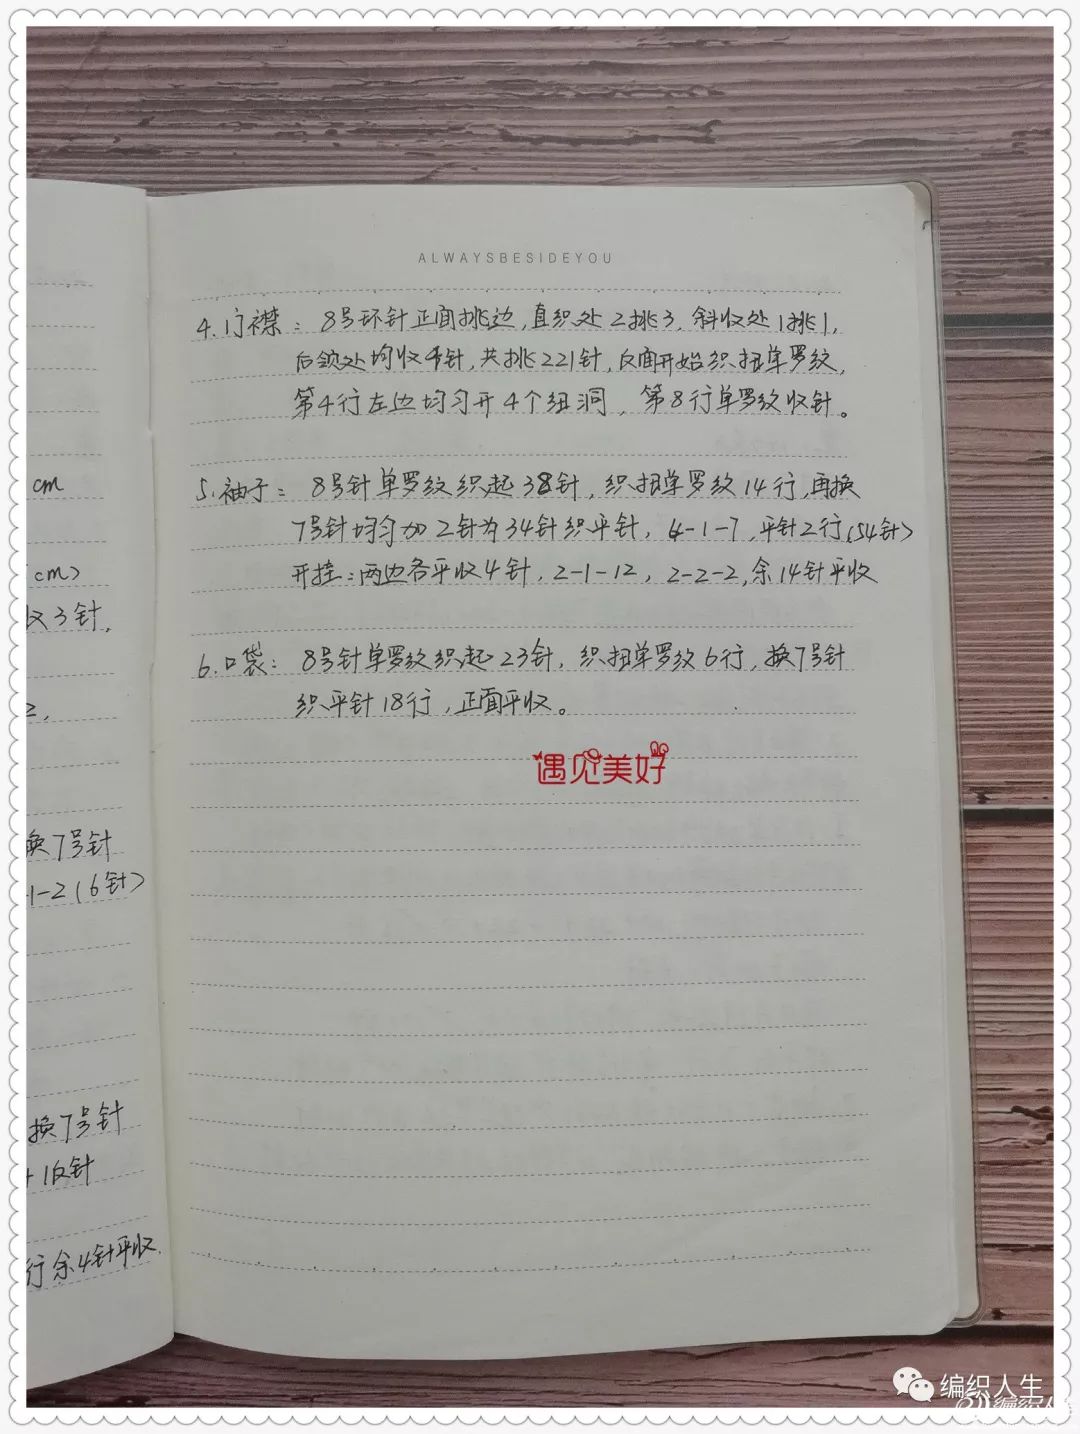 ALWAYSBESIDEYOU
4.门襟：8号环针正面挑边，直织处2挑3，斜收处1挑1，
后领处均收4针，共挑221针，反面开始织扭单罗纹，
第4行左边均匀开4个纽洞，第8行单罗纹收针。
5.袖子：8号针单罗纹织起38针，织扭单罗纹14行，再换
7号针均匀加2针为34针织平针，4-1-7，平针2行(54针)
开挂：两边各平收4针，2-1-12，2-2-2，余14针平收
6.口袋：8号针单罗纹织起23针，织扭单罗纹6行，换7号针
织平针18行，正面平收。
遇见美好
cm
cm)
收3针，
2，
换7号针
1-2(6针)
换7号针
针
行余4针平收.
编织人生
编织人生